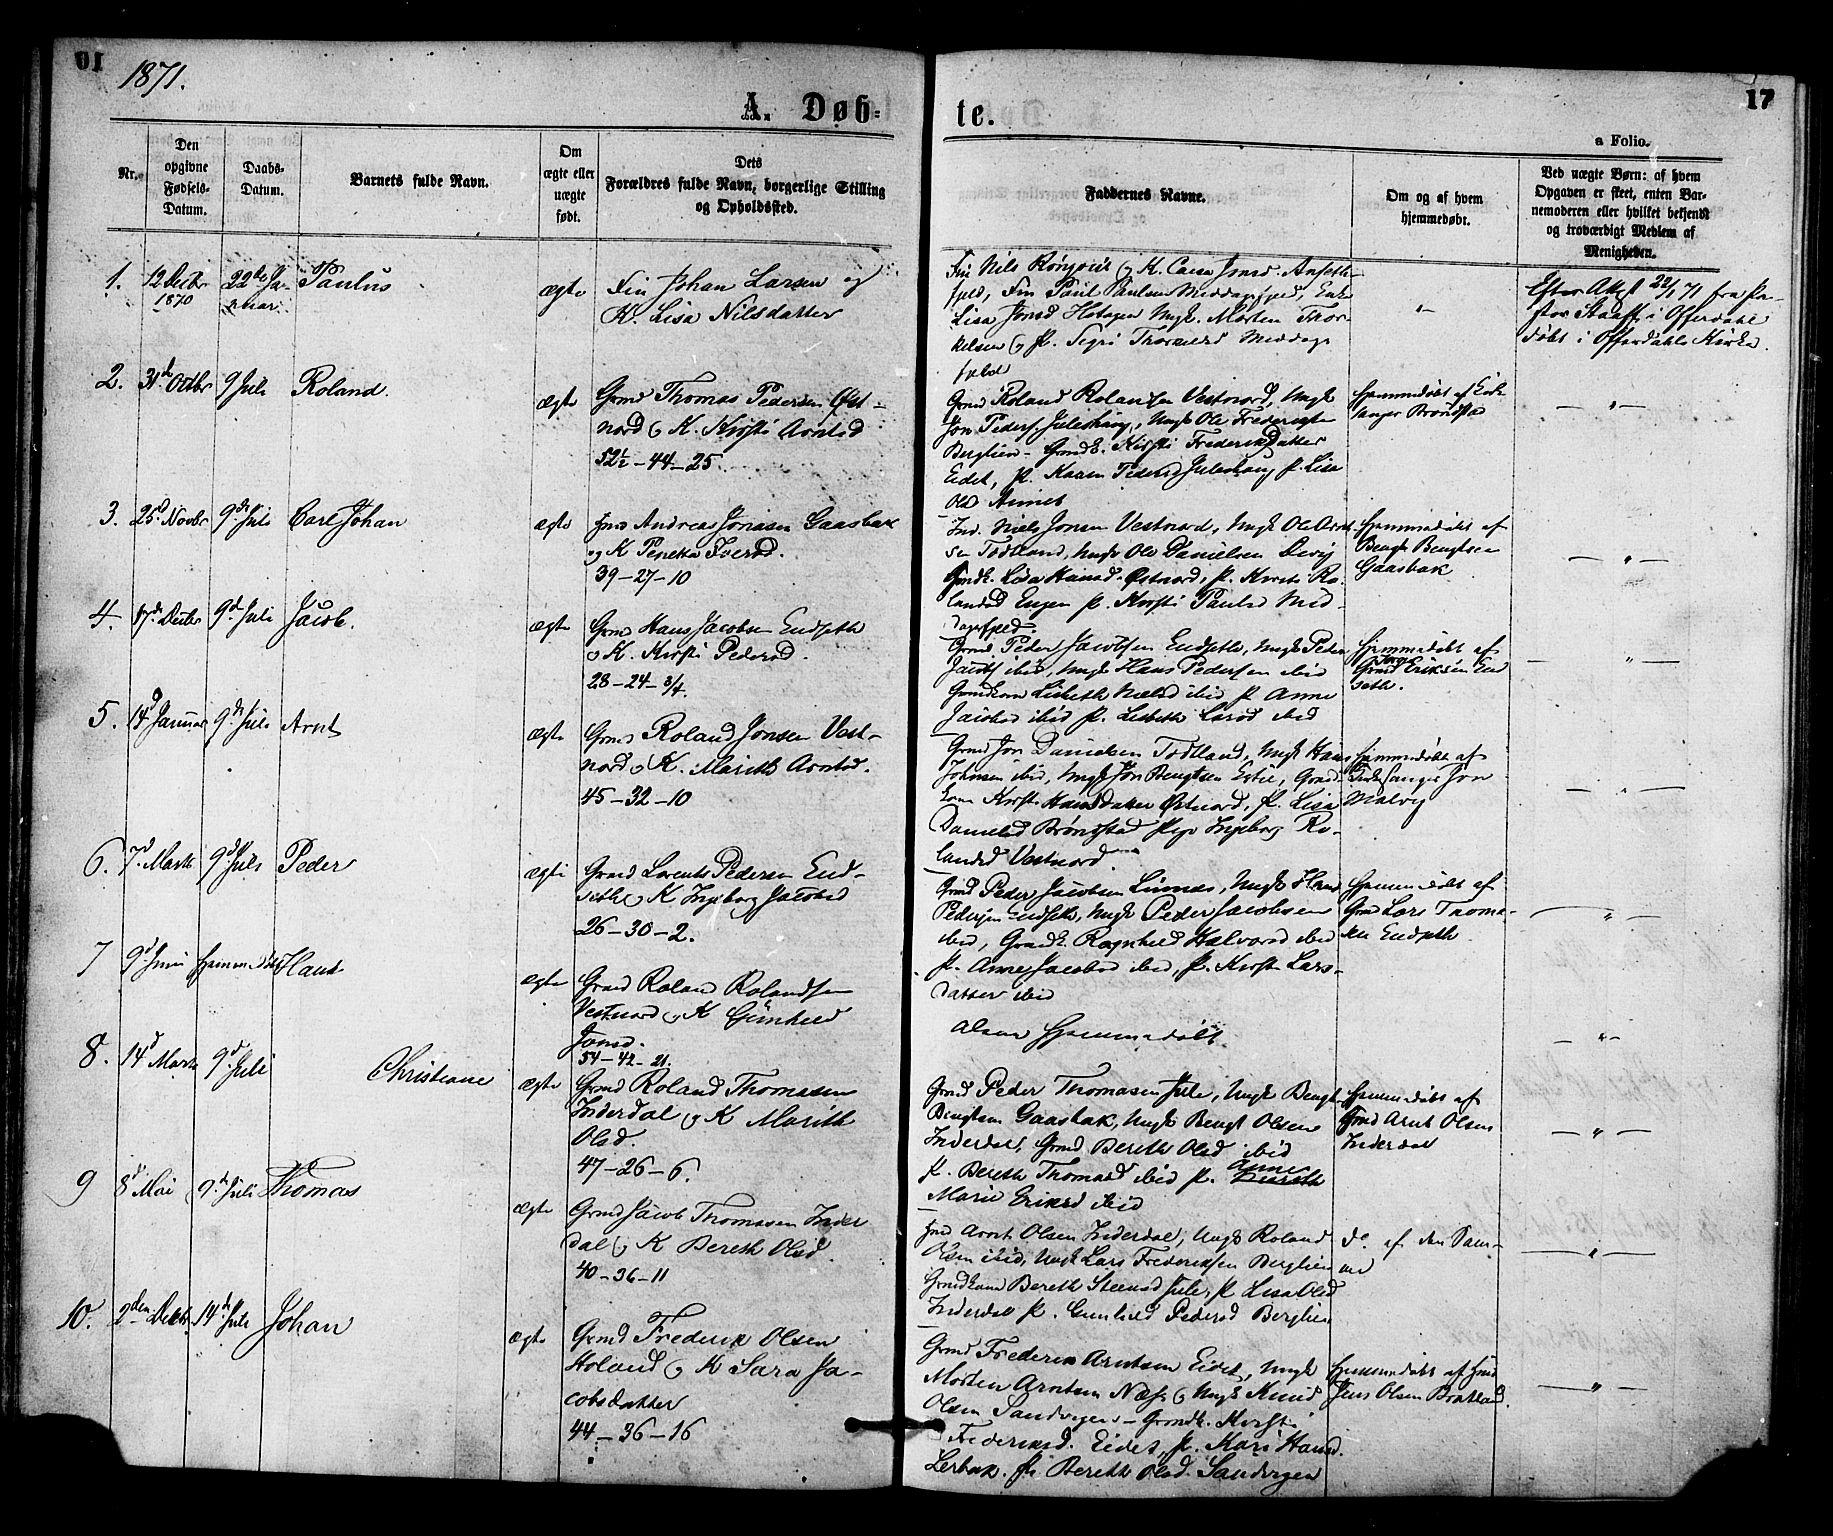 1871.
17
A. Døb-
te.
a Folio.
Nr.
Den
opgivne
Fødsels-
Datum.
Daabs-
Datum.
Barnets fulde Navn.
Om
ægte eller
uægte
født.
Dets
Forældres fulde Navn, borgerlige Stilling
og Opholdssted.
Faddernes Navne.
Om og af hvem
hjemmedøbt.
Ved uægte Børn: af hvem
Opgaven er skeet, enten Bar-
nemoderen eller hvilket bekjendt
og troværdigt Medlem af
Menigheden.
1.
12 Decbr
1870
22de Ja-
nuar
Paulus
ægte
Fin Johan Larsen og
K. Lisa Nilsdatter
Fin Nils
K.
Fin Paul Paulsen Middagsfjeld, Enke
Lisa Jonsd Hotagen Ungk. Morten Thor-
kelsen
Middags
fjeld
Efter Attest 22/1 71 fra Pa-
stor i Offerdahl
døbt i Offerdahls Kirke.
2.
31te Octbr
9 Juli
Roland.
ægte
Grmd Thomas Pedersen Øst-
nord og K. Kirsti Arntsd
52½ - 44 - 25.
Grmd Roland Rolandsen Vestnord, Ungk
Jon Peders. Juleshaug, Ungk Ole Frederiksen
Berglien - Grmdk. Kirsti Frederiksdatter
Eidet, p. Karen Pedersd Juleshaug p. Lisa
Olsd
Hjemmedøbt af Kirke-
sanger Brøndstad
3.
25d Novbr
9de Juli
Carl Johan
ægte
Andreas Jonasen Gaasbak
og K Iversd.
39 - 27 - 10
Ind. Niels Jonsen Vestnord, Ungk Ole Arnt-
sen Tødtland, Ungk Ole Danielsen Devij
Grmdk. Lisa Hansd. Østnord, p. Kirsti Ro-
landsd Engen p. Kirsti Paulsd Mid-
dagsfjeld.
Hjemmedøbt af
Bengt Bengtsen
Gaasbak
4.
17de Decbr
9d Juli
Jacob.
ægte
Grmd Hans Jacobsen Endseth
og K. Kirsti Pedersd.
28 - 24 - 3/4.
Grmd Peder Jacobsen Endseth, Ungk Peder
Jacobs ibid, Ungk Hans Pedersen ibid
Grmdkone Lisbeth ibid p. Anne
Jacobsd ibid p. Lisbeth Larsd ibid
Hjemmedøbt af
Grmd Eriksen End
seth.
5.
14d Januar
9de Juli
Arnt
ægte
Grmd Roland Jonsen Vest-
nord og K. Marith Arntsd.
45 - 32 - 10
Grmd Jon Danielsen Tødtland, Ungk Hans
Johnsen ibid, Ungk Jon Bengtsen, Grmd-
kone Kirsti Hansdatter Østnord, p. Lisa
Danielsd Brøndstad Pige Ingeborg Ro-
landsd Vestnord
Hjemmedøbt af
Kirkesanger Jon
Malvig
6.
7d Marts
9d Juli
Peder
ægte
Grmd Lorents Pedersen End-
seth og K Ingeborg Jacobsd
26 - 30 - 2.
Grmd Peder Jacobsen, Ungk Hans
Pedersen Endseth, Ungk Peder Jacobsen
ibid, Grmdk. Ragnhild Halvorsd ibid
p. Anne Jacobsd ibid, p. Kirsti Lars-
datter ibid
Hjemmedøbt af
Grmd Lars Thoma-
sen Endseth
7
9d Juni
Hjemmedøbt
Hans
ægte
Grmd Roland Rolandsen
Vestnord og K Gunhild
Jonsd.
54 - 42 - 21.
alene Hjemmedøbt.
8.
14d Marts
9d Juli
Christiane
ægte
Grmd Roland Thomasen
Inderdal og K Marith
Olsd.
47 - 26 - 6.
Grmd Peder Thomasen Jule, Ungk Bengt
Bengtsen Gaasbak, Ungk Bengt Olsen
Inderdal, Grmd Bereth Olsd ibid
p. Bereth Thomasd ibid p. Anne
Marie Eriksd ibid
Hjemmedøbt af
Grmd Arnt Olsen
Inderdal
9
8d Mai
9de Juli
Thomas
ægte
Grmd Jacob Thomasen Inder
dal og K Bereth Olsd.
40 - 36 - 11
Arnt Olsen Inderdal, Ungk Roland
Olsen ibid, Ungk Lars Frederiksen Berglien
Grmdkone Bereth Steensd Jule, p Lisa Olsd
Inderdal p. Gunhild Pedersd Berglien
do af den Sam-
me
10.
2den Decbr
14de Juli
Johan
ægte
Grmd Frederik Olsen
Holand og K Sara Ja-
cobsdatter
44 - 36 - 16
Grmd Frederik Arntsen Eidet, Ungk
Morten Arntsen Næss og Ungk Knud
Olsen Sandvigen - Grmdk. Kirsti
Frederiksd. Eidet, p. Kari Hansd.
Lerbak. p. Bereth Olsd. Sandvigen
Hjemmedøbt af
Jens Olsen Bratland.